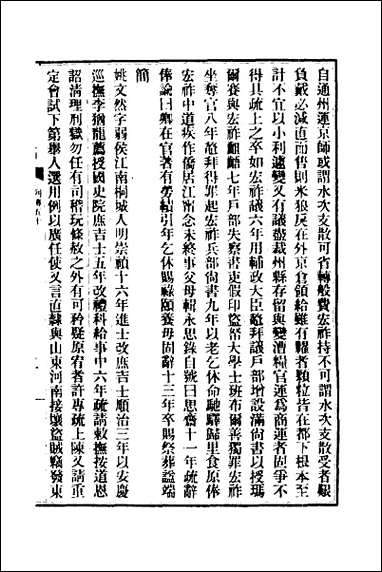 自通州運京師或謂水次支散可省轉般費宏祚持不可謂水次支散受者艱
負戴必減直而售則米狼戾在外京倉領給雖有糶者顆粒皆在都下根本至
計不宜以小利遽變又有議盡裁州縣存留與變漕糧官運為商運者固爭不
得具疏上之卒如宏祚議六年用輔政大臣鼇拜議戶部增設滿尚書以授瑪
爾賽與宏祚齟齬七年戶部失察書吏假印盜帑大學士班布爾善獨罪宏祚
坐奪官八年鼇拜得罪起宏祚兵部尚書九年以老乞休命馳驛歸里食原俸
宏祚中道疾作僑居江甯念未終事父母輯永思錄自號曰思齋十一年疏辭
俸諭曰卿在官著有勞績引年乞休賜祿頤養毋固辭十三年卒賜祭葬諡端
簡
姚文然字弱侯江南桐城人明崇禎十六年進士改庶吉士順治三年以安慶
巡撫李猶龍薦授國史院庶吉士五年改禮科給事中六年疏請敕撫按道恩
詔清理刑獄勿任有司稽玩條赦之外有可矜疑原宥者許專疏上陳又請重
定會試下第舉人選用例以廣任使又言直隸與山東河南接壤盜賊竊發東
列傳五十